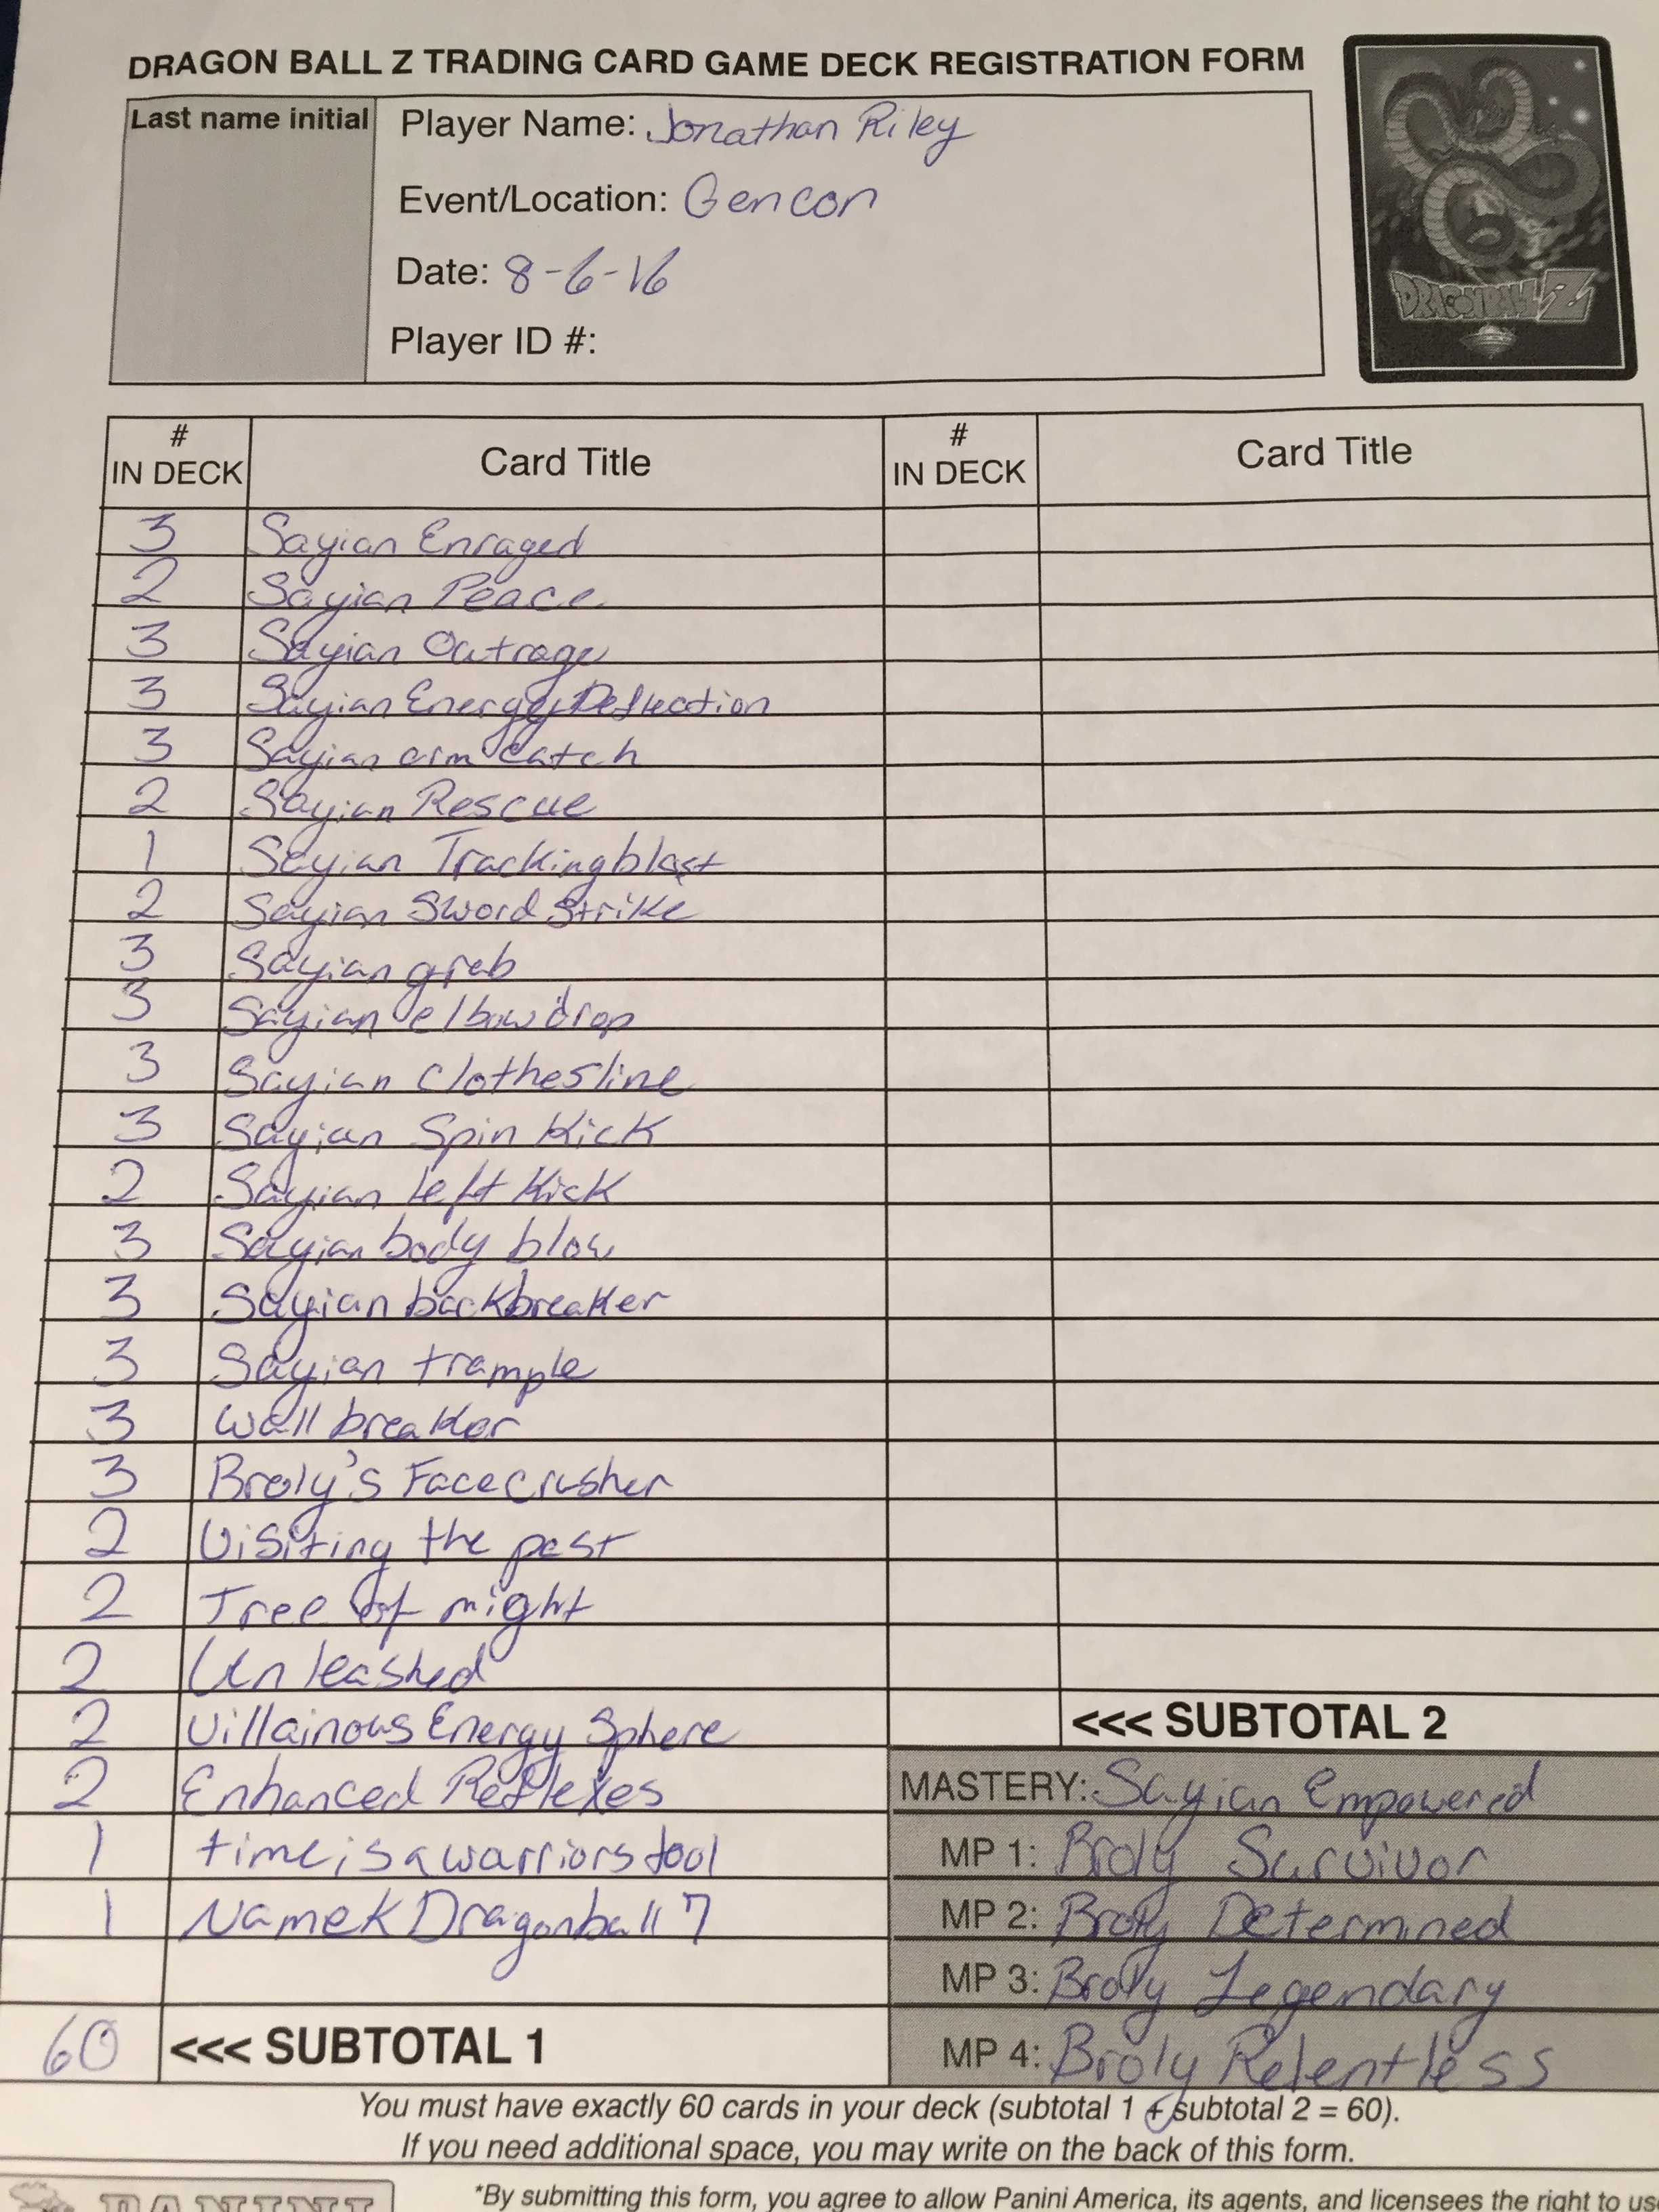 DRAGON BALL Z TRADING CARD GAME DECK REGISTRATION FORM
Last name initial
Player Name: Jonathan Riley
Event/Location: Gencon
Date: 8-6-16
Player ID #:
DRAGONBALL Z
# IN DECK Card Title # IN DECK Card Title
3 Sayian Enraged
2 Sayian Peace
3 Sayian Outrage
3 Sayian Energy Deflection
3 Sayian arm catch
2 Sayian Rescue
1 Sayian Trackingblast
2 Sayian Sword Strike
3 Sayian grab
3 Sayian elbow drop
3 Sayian Clothesline
3 Sayian Spin Kick
2 Sayian left Kick
3 Sayian body blow
3 Sayian backbreaker
3 Sayian trample
3 Wall breaker
3 Broly's Facecrusher
2 Visiting the past
2 Tree of might
2 Unleashed
2 Villainous Energy Sphere
2 Enhanced Reflexes
1 time is a warriors tool
1 Namek Dragonball 7
60 <<< SUBTOTAL 1
<<< SUBTOTAL 2
MASTERY: Sayian Empowered
MP 1: Broly Survivor
MP 2: Broly Determined
MP 3: Broly Legendary
MP 4: Broly Relentless
You must have exactly 60 cards in your deck (subtotal 1 + subtotal 2 = 60).
If you need additional space, you may write on the back of this form.
PANINI
*By submitting this form, you agree to allow Panini America, its agents, and licensees the right to us